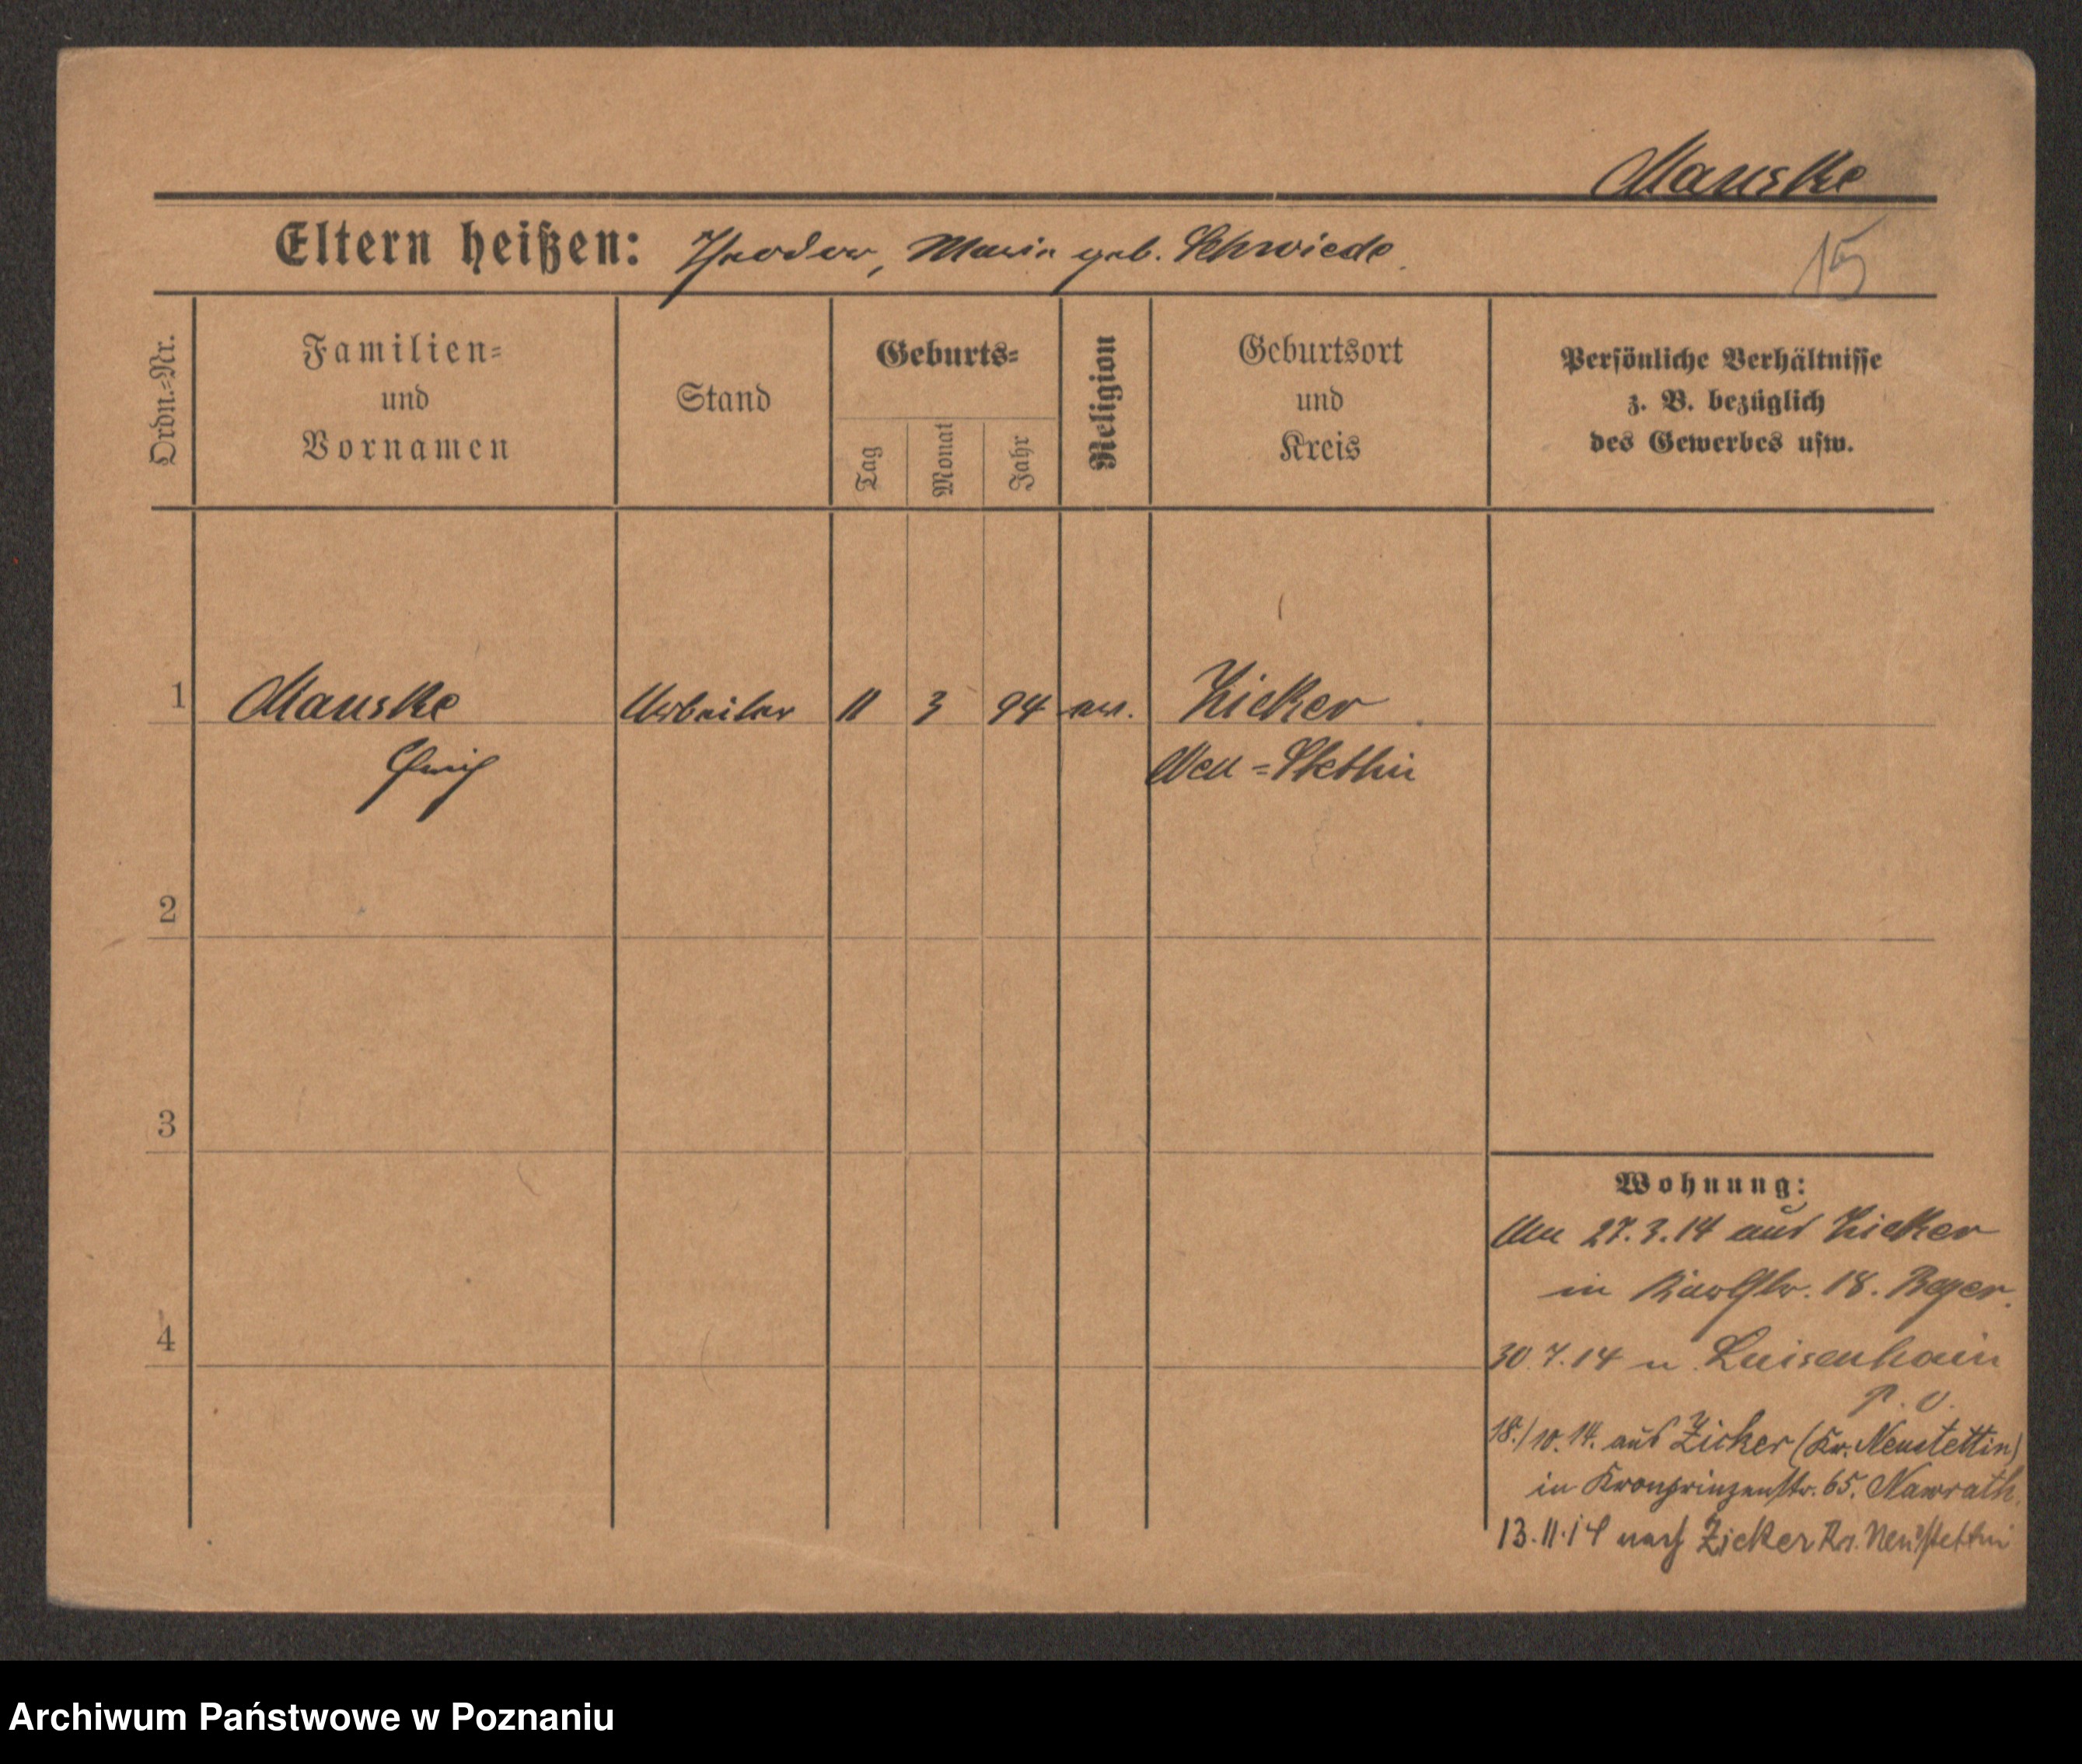 Mauske
Eltern heißen: Theodor, Marie geb. Schwiede.
15
Ordn.=Nr.
Familien=
und
Vornamen
Stand
Geburts=
Tag
Monat
Jahr
Religion
Geburtsort
und
Kreis
Persönliche Verhältnisse
z. B. bezüglich
des Gewerbes usw.
1 Mauske Arbeiter 11 3 94 ev. Zicker
Neu=Stettin
2
3
4
Wohnung:
27.3.14 aus Zicker
in 18. Beyer.
30.7.14 n. Luisenhain
P. O.
18./10.14. aus Zicker (Kr. Neustettin)
in Kronprinzenstr. 65. Nawrath.
13.11.14 nach Zicker Kr. Neustettin
Archiwum Państwowe w Poznaniu